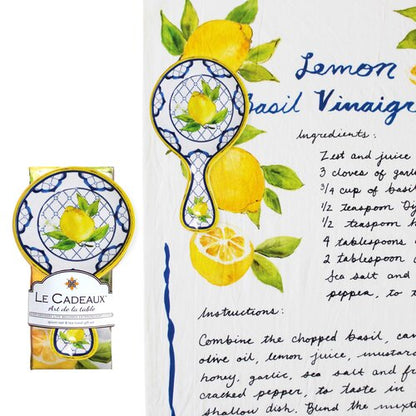 Lemon
Basil Vinaigr
Ingredients:
Zest and juice
3 cloves of garl
3/4 cup of basil
1/2 teaspoon Di
1/2 teaspoon h
4 tablespoons o
2 tablespoon o
Sea salt and
pepper, to t
Instructions:
Combine the chopped basil, can
olive oil, lemon juice, mustar
honey, garlic, sea salt and fr
cracked pepper, to taste in
shallow dish. Blend the mixt
LE CADEAUX
Art de la table